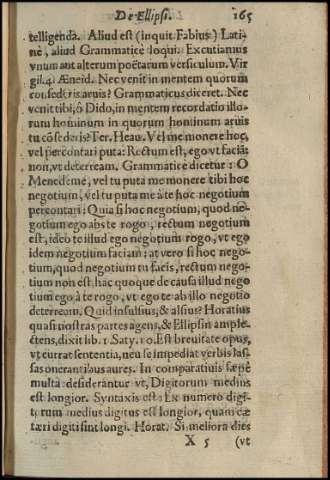 De Ellipsi. 165
telligendā. Aliud est (inquit Fabius) Lati-
nè, aliud Grammaticè loqui. Excutiamus
vnum aut alterum poëtarum versiculum. Vir
gil. 4. Æneid. Nec venit in mentem quorum
consederis aruis? Grammaticus diceret. Nec
venit tibi, ô Dido, in mentem recordatio illo-
rum hominum in quorum hominum aruis
tu cōsederis? Ter. Heau. Vel me monere hoc,
vel percontari puta: Rectum est, ego vt faciā:
non, vt deterream. Grammaticè dicetur: O
Menedeme, vel tu puta me monere tibi hoc
negotium, vel tu puta me à te hoc negotium
percontari: Quia si hoc negotium, quod ne-
gotium ego abs te rogo, rectum negotium
est, ideo te illud ego negotium rogo, vt ego
idem negotium faciam: at vero si hoc nego-
tium, quod negotium tu facis, rectum nego-
tium non est, hac quoque de causa illud nego
tium ego à te rogo, vt ego te ab illo negotio
deterream. Quid insulsius, & alsius? Horatius
quasi nostras partes agens, & Ellipsin ample-
ctens, dixit lib. 1. Saty. 10. Est breuitate opus,
vt currat sententia, neu se impediat verbis las-
sas onerantibus aures. In comparatiuis sæpè
multa desiderantur vt, Digitorum medius
est longior. Syntaxis est: Ex numero digi-
torum medius digitus est longior, quam cæ
tæri digiti sint longi. Horat. Si meliora dies
X 5 (vt